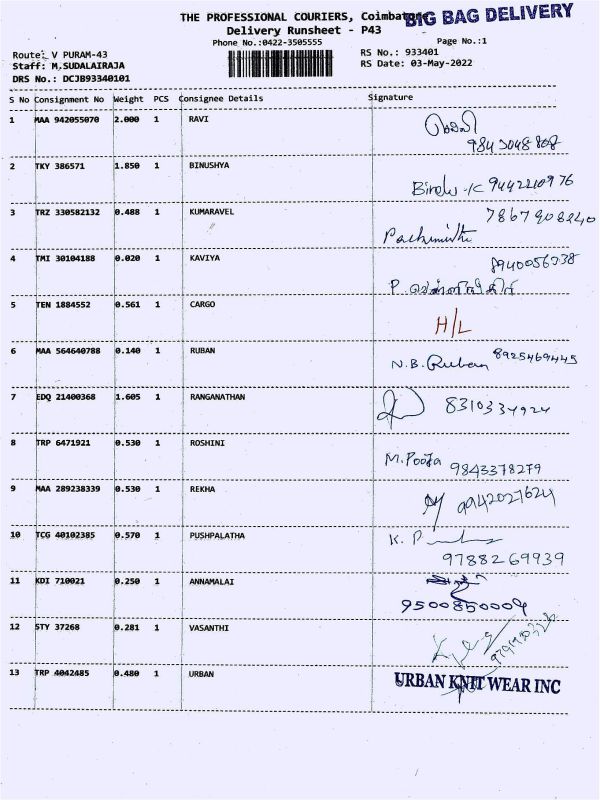 THE PROFESSIONAL COURIERS, Coimbatore
BIG BAG DELIVERY
Delivery Runsheet - P43
Phone No.:0422-3505555
Page No.:1
Route: V PURAM-43
RS No.: 933401
Staff: M.SUDALAIRAJA
RS Date: 03-May-2022
DRS No.: DCJB93340101
S No Consignment No Weight PCS Consignee Details Signature
1 MAA 942055070 2.000 1 RAVI
2 TKY 386571 1.850 1 BINUSHYA
3 TRZ 330582132 0.488 1 KUMARAVEL
4 TMI 30104188 0.020 1 KAVIYA
8940056338
5 TEN 1884552 0.561 1 CARGO H/L
6 MAA 564640788 0.140 1 RUBAN N.B. Ruban 8925469445
7 EDQ 21400368 1.605 1 RANGANATHAN 8310334924
8 TRP 6471921 0.530 1 ROSHINI M.Pooja 9843378279
9 MAA 289238339 0.530 1 REKHA 9942027624
10 TCG 40102385 0.570 1 PUSHPALATHA K. P
9788269939
11 KDI 710021 0.250 1 ANNAMALAI
9500850009
12 STY 37268 0.281 1 VASANTHI
13 TRP 4042485 0.480 1 URBAN URBAN KNIT WEAR INC